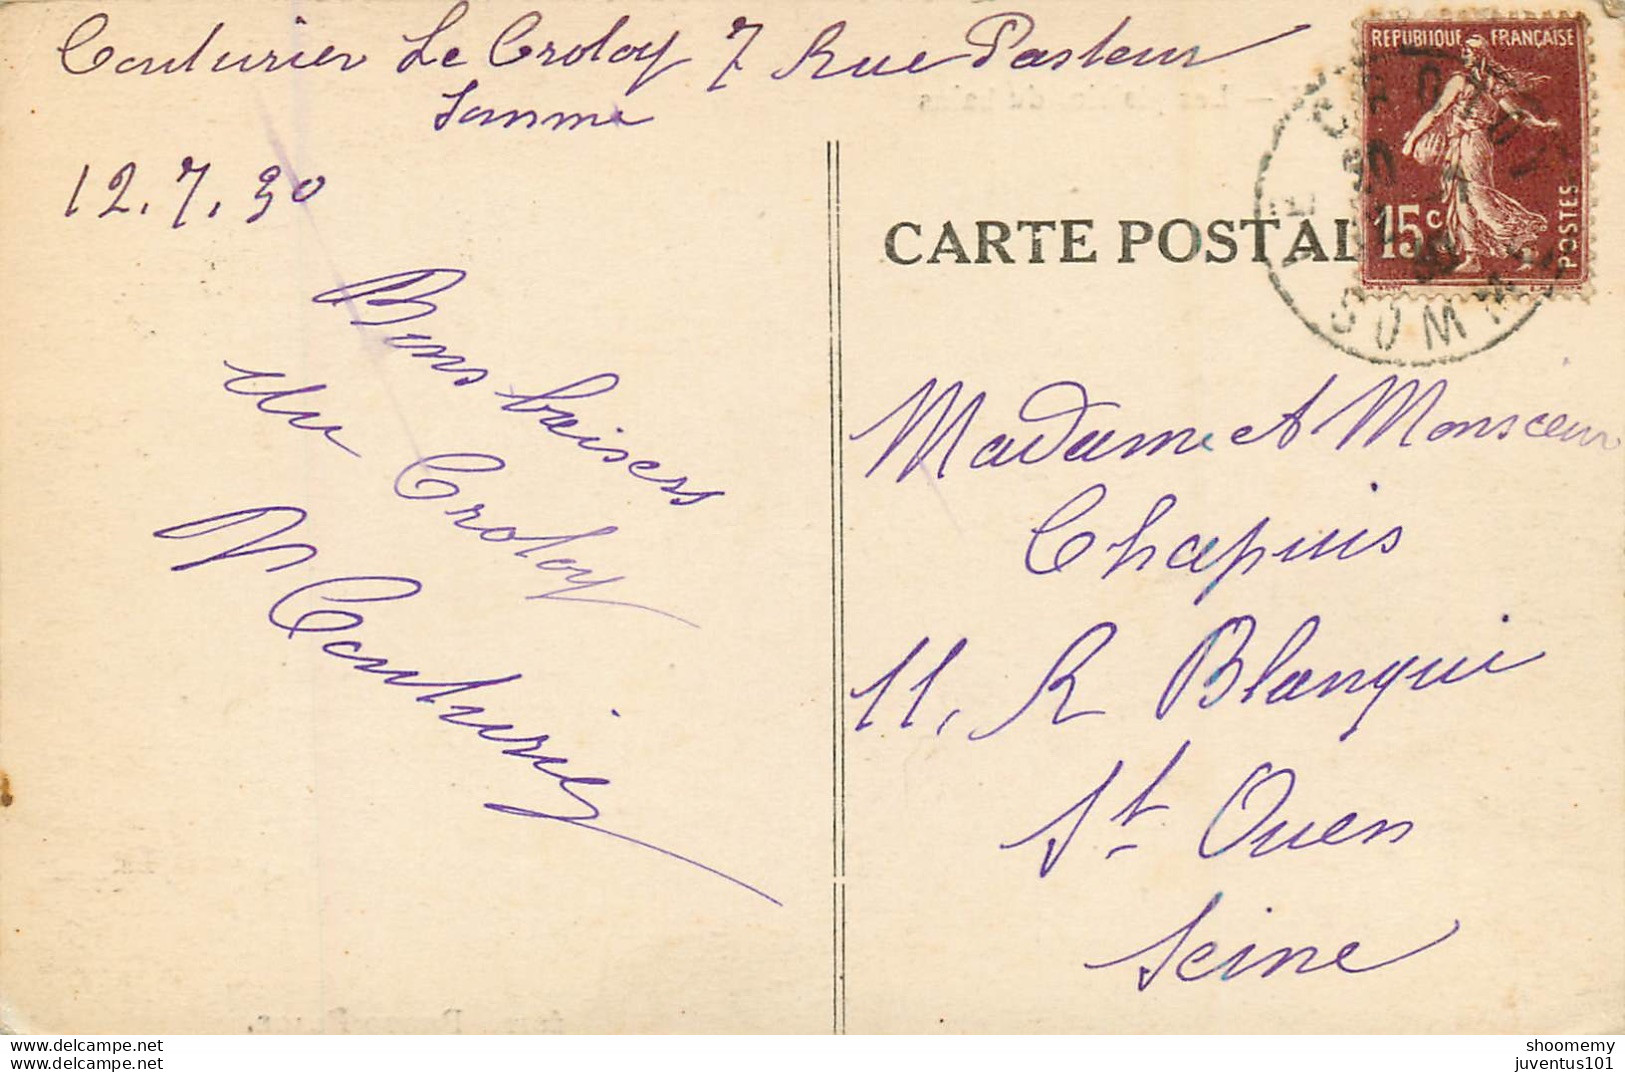 Couturier Le Crotoy 7 Rue Pasteur
Somme
12.7.30
Bons baisers
du Crotoy
M Couturier
CARTE POSTAL
REPUBLIQUE FRANÇAISE
15c
POSTES
LE CROTOY
SOMME
Madame et Monsieur
Chapuis
11, R Blanqui
St Ouen
Seine
www.delcampe.net
shoomemy
juventus101